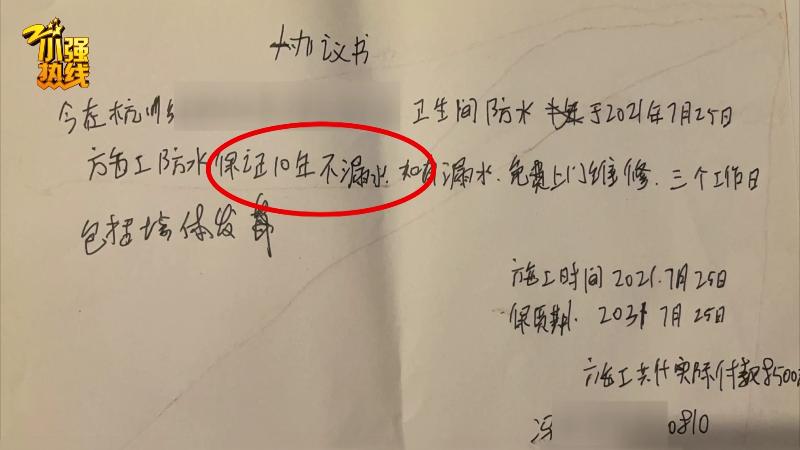 小强热线
协议书
今在杭州 卫生间防水 于2021年7月25日
施工防水保证10年不漏水.如有漏水.免费上门维修.三个工作日
包括墙体发
施工时间 2021.7月25日
保质期. 2031 7月25日
施工共计实际付款8500
冯 0810